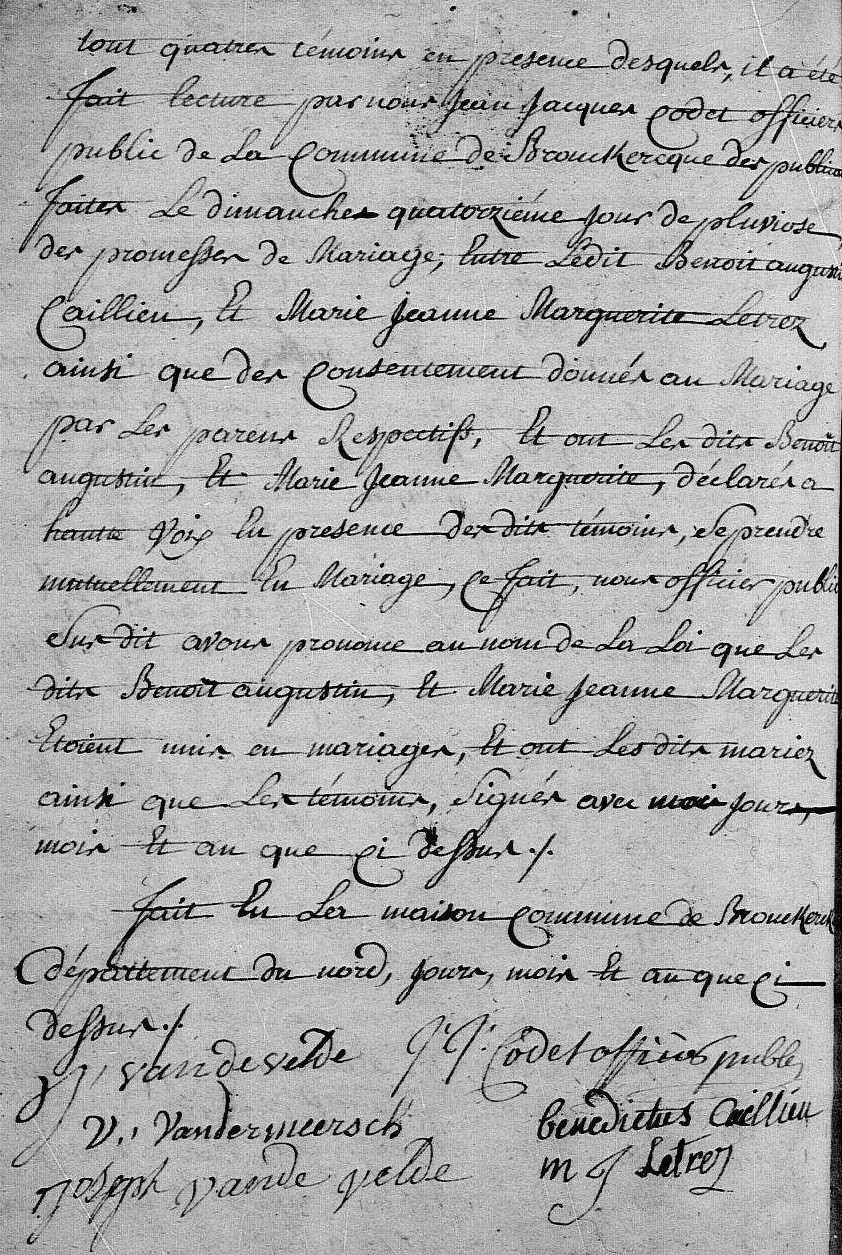 tout quatres témoins en presence desquels, il a été
fait lecture par nous Jean Jacques Codet officiers
public de La Commune de Brouckercque des publica
faites Le dimanches quatorziéme jour de pluviose
des promesses de Mariage, Entre Ledit Benoit augustin
Caillieu, Et Marie Jeanne Marguerite Letrez
ainsi que des Consentement donnés au Mariage
par Les parens Respectifs, Et ont Les dits Benoit
augustin, Et Marie Jeanne Marguerite, déclarés a
haute Voix En presence des dits témoins, Se prendre
mutuellement En Mariage, Ce fait, nous officier public
Sus dit avons prononce au nom de La Loi que Les
dits Benoit augustin, Et Marie Jeanne Marguerite
Etoient unis en mariages, Et ont Les dits mariez
ainsi que Les témoins, Signés avec moi jours,
mois Et an que Ci dessus ./.
fait En La maison Commune de Brouckerke
département du nord, jours, mois Et an que Ci
dessus ./.
J: vandevelde J: J: Codet officiers public
V: Vandermeersch benedictus Caillieu
Joseph vande velde m J Letrez